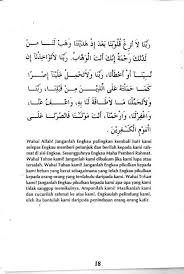 رَبَّنَا لَا تُزِغْ قُلُوبَنَا بَعْدَ إِذْ هَدَيْتَنَا وَهَبْ لَنَا مِنْ
لَدُنْكَ رَحْمَةً إِنَّكَ أَنْتَ الْوَهَّابُ. رَبَّنَا لَا تُؤَاخِذْنَا إِنْ
نَسِيْنَا أَوْ أَخْطَأْنَا، رَبَّنَا وَلَا تَحْمِلْ عَلَيْنَا إِصْرًا
كَمَا حَمَلْتَهُ عَلَى الَّذِيْنَ مِنْ قَبْلِنَا، رَبَّنَا
وَلَا تُحَمِّلْنَا مَا لَا طَاقَةَ لَنَا بِهِ وَاعْفُ عَنَّا
وَاغْفِرْ لَنَا وَارْحَمْنَا أَنْتَ مَوْلَانَا فَانْصُرْنَا عَلَى
الْقَوْمِ الْكٰفِرِيْنَ
Wahai Allah! Janganlah Engkau palingkan kembali hati kami
selepas Engkau memberi petunjuk dan berilah kepada kami rah-
mat di sisi Engkau. Sesungguhnya Engkau Maha Pemberi Rahmat.
Wahai Tuhan kami! Janganlah kami dikenakan jika kami lupa atau
tersalah. Wahai Tuhan kami! Janganlah Engkau pikulkan kepada
kami apa yang Engkau pikulkan kepada orang yang terdahulu
daripada kami. Wahai Tuhan kami! Janganlah Engkau pikulkan kepada kami apa apa yang
tidak sanggup memikulnya. Ampunilah kami! Maafkanlah kami
dan cucurilah rahmat atas kami. Engkaulah pelindung kami,
oleh itu bantulah kami daripada perbuatan orang-orang kafir.
18